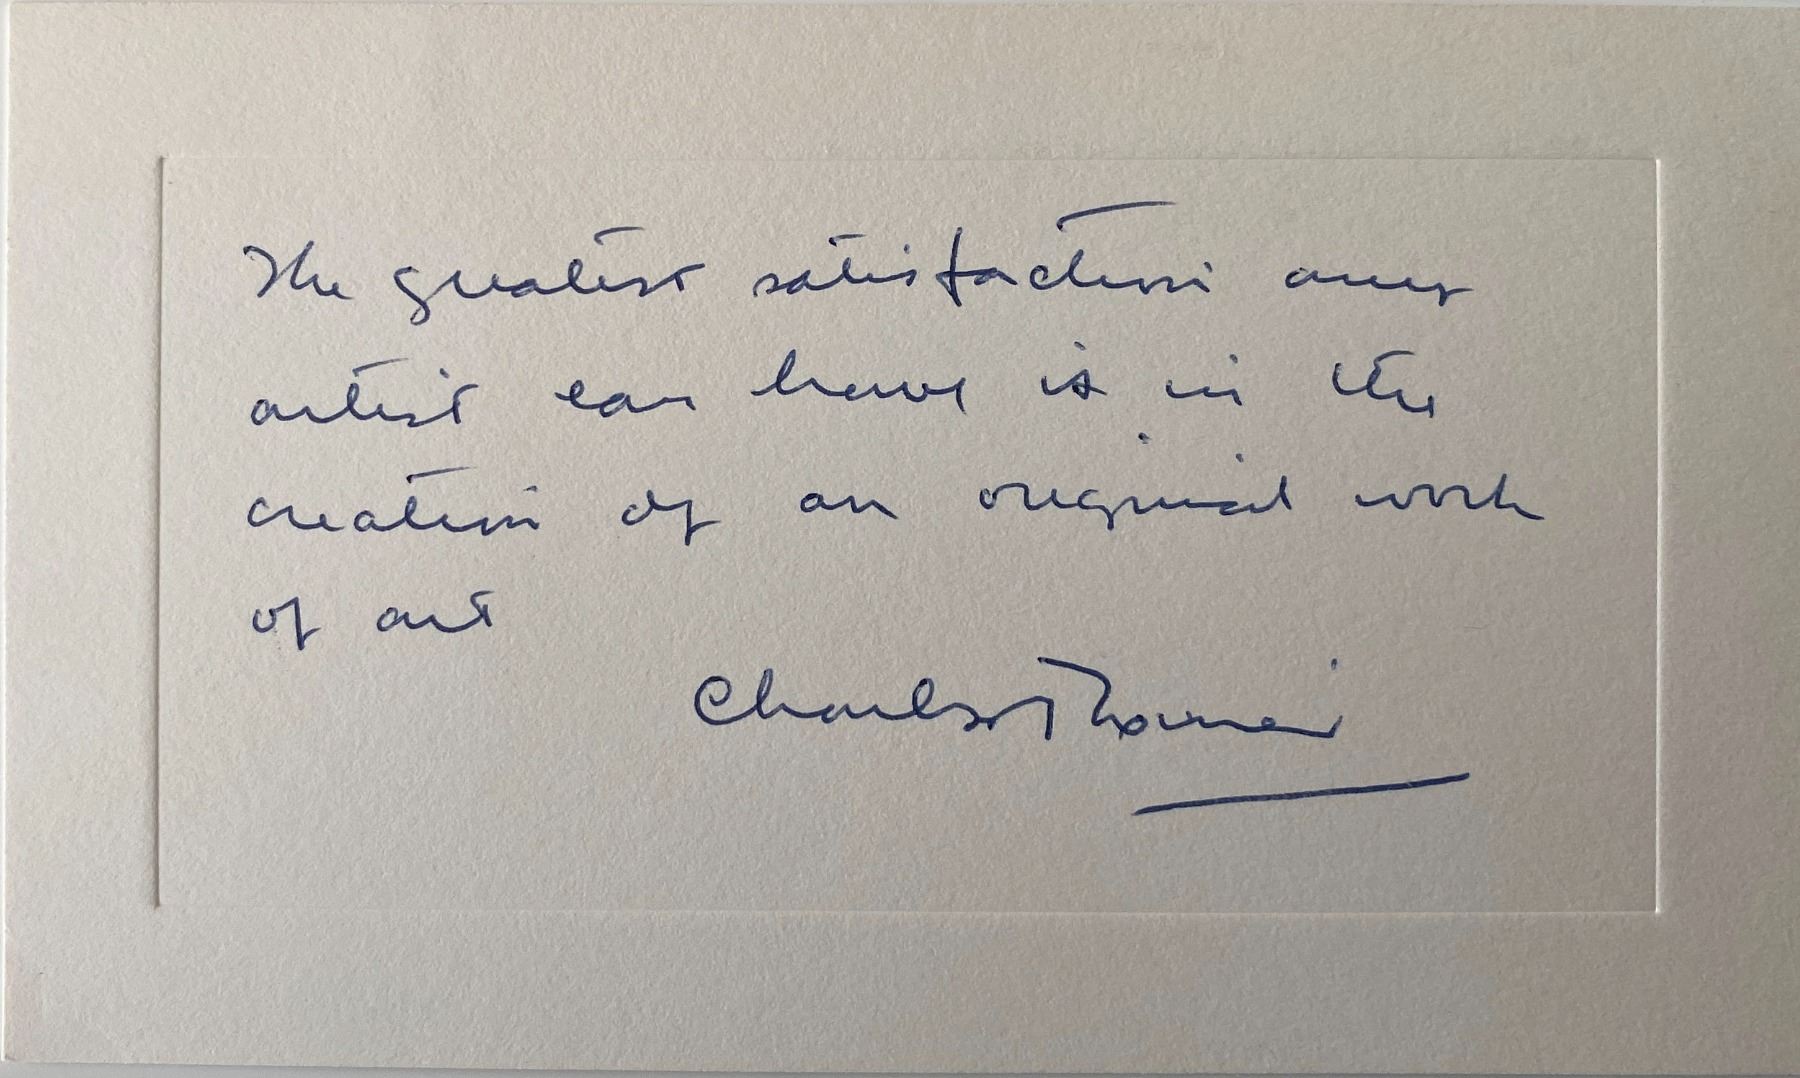 The greatest satisfaction any
artist can have is in the
creation of an original work
of art
Charles